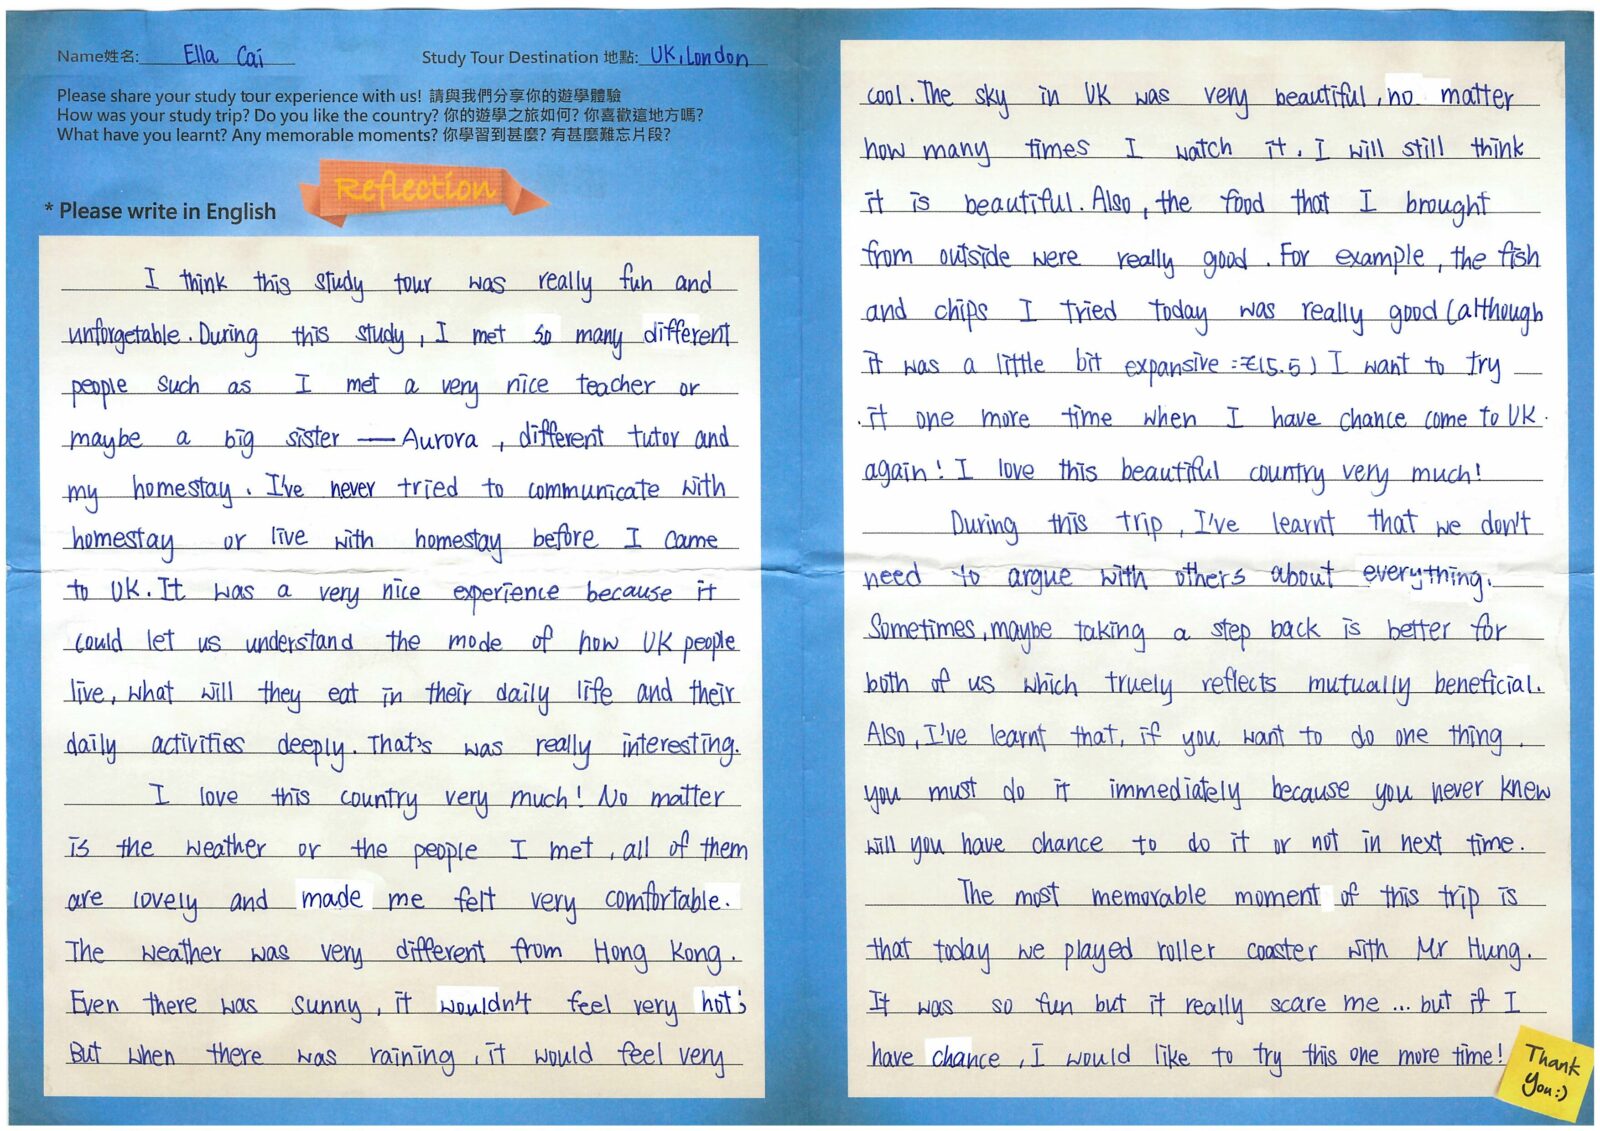 Name姓名: Ella Cai Study Tour Destination 地點: UK, London
Please share your study tour experience with us! 請與我們分享你的遊學體驗
How was your study trip? Do you like the country? 你的遊學之旅如何? 你喜歡這地方嗎?
What have you learnt? Any memorable moments? 你學習到甚麼? 有甚麼難忘片段?
Reflection
* Please write in English
I think this study tour was really fun and
unforgetable. During this study, I met so many different
people such as I met a very nice teacher or
maybe a big sister — Aurora, different tutor and
my homestay. I've never tried to communicate with
homestay or live with homestay before I came
to UK. It was a very nice experience because it
could let us understand the mode of how UK people
live, what will they eat in their daily life and their
daily activities deeply. That's was really interesting.
I love this country very much! No matter
is the weather or the people I met, all of them
are lovely and made me felt very comfortable.
The weather was very different from Hong Kong.
Even there was sunny, it wouldn't feel very hot;
But when there was raining, it would feel very
cool. The sky in UK was very beautiful, no matter
how many times I watch it, I will still think
it is beautiful. Also, the food that I brought
from outside were really good. For example, the fish
and chips I tried today was really good (although
it was a little bit expansive :£15.5) I want to try
it one more time when I have chance come to UK
again! I love this beautiful country very much!
During this trip, I've learnt that we don't
need to argue with others about everything.
Sometimes, maybe taking a step back is better for
both of us which truely reflects mutually beneficial.
Also, I've learnt that, if you want to do one thing,
you must do it immediately because you never knew
will you have chance to do it or not in next time.
The most memorable moment of this trip is
that today we played roller coaster with Mr Hung.
It was so fun but it really scare me ... but if I
have chance, I would like to try this one more time!
Thank
You:)